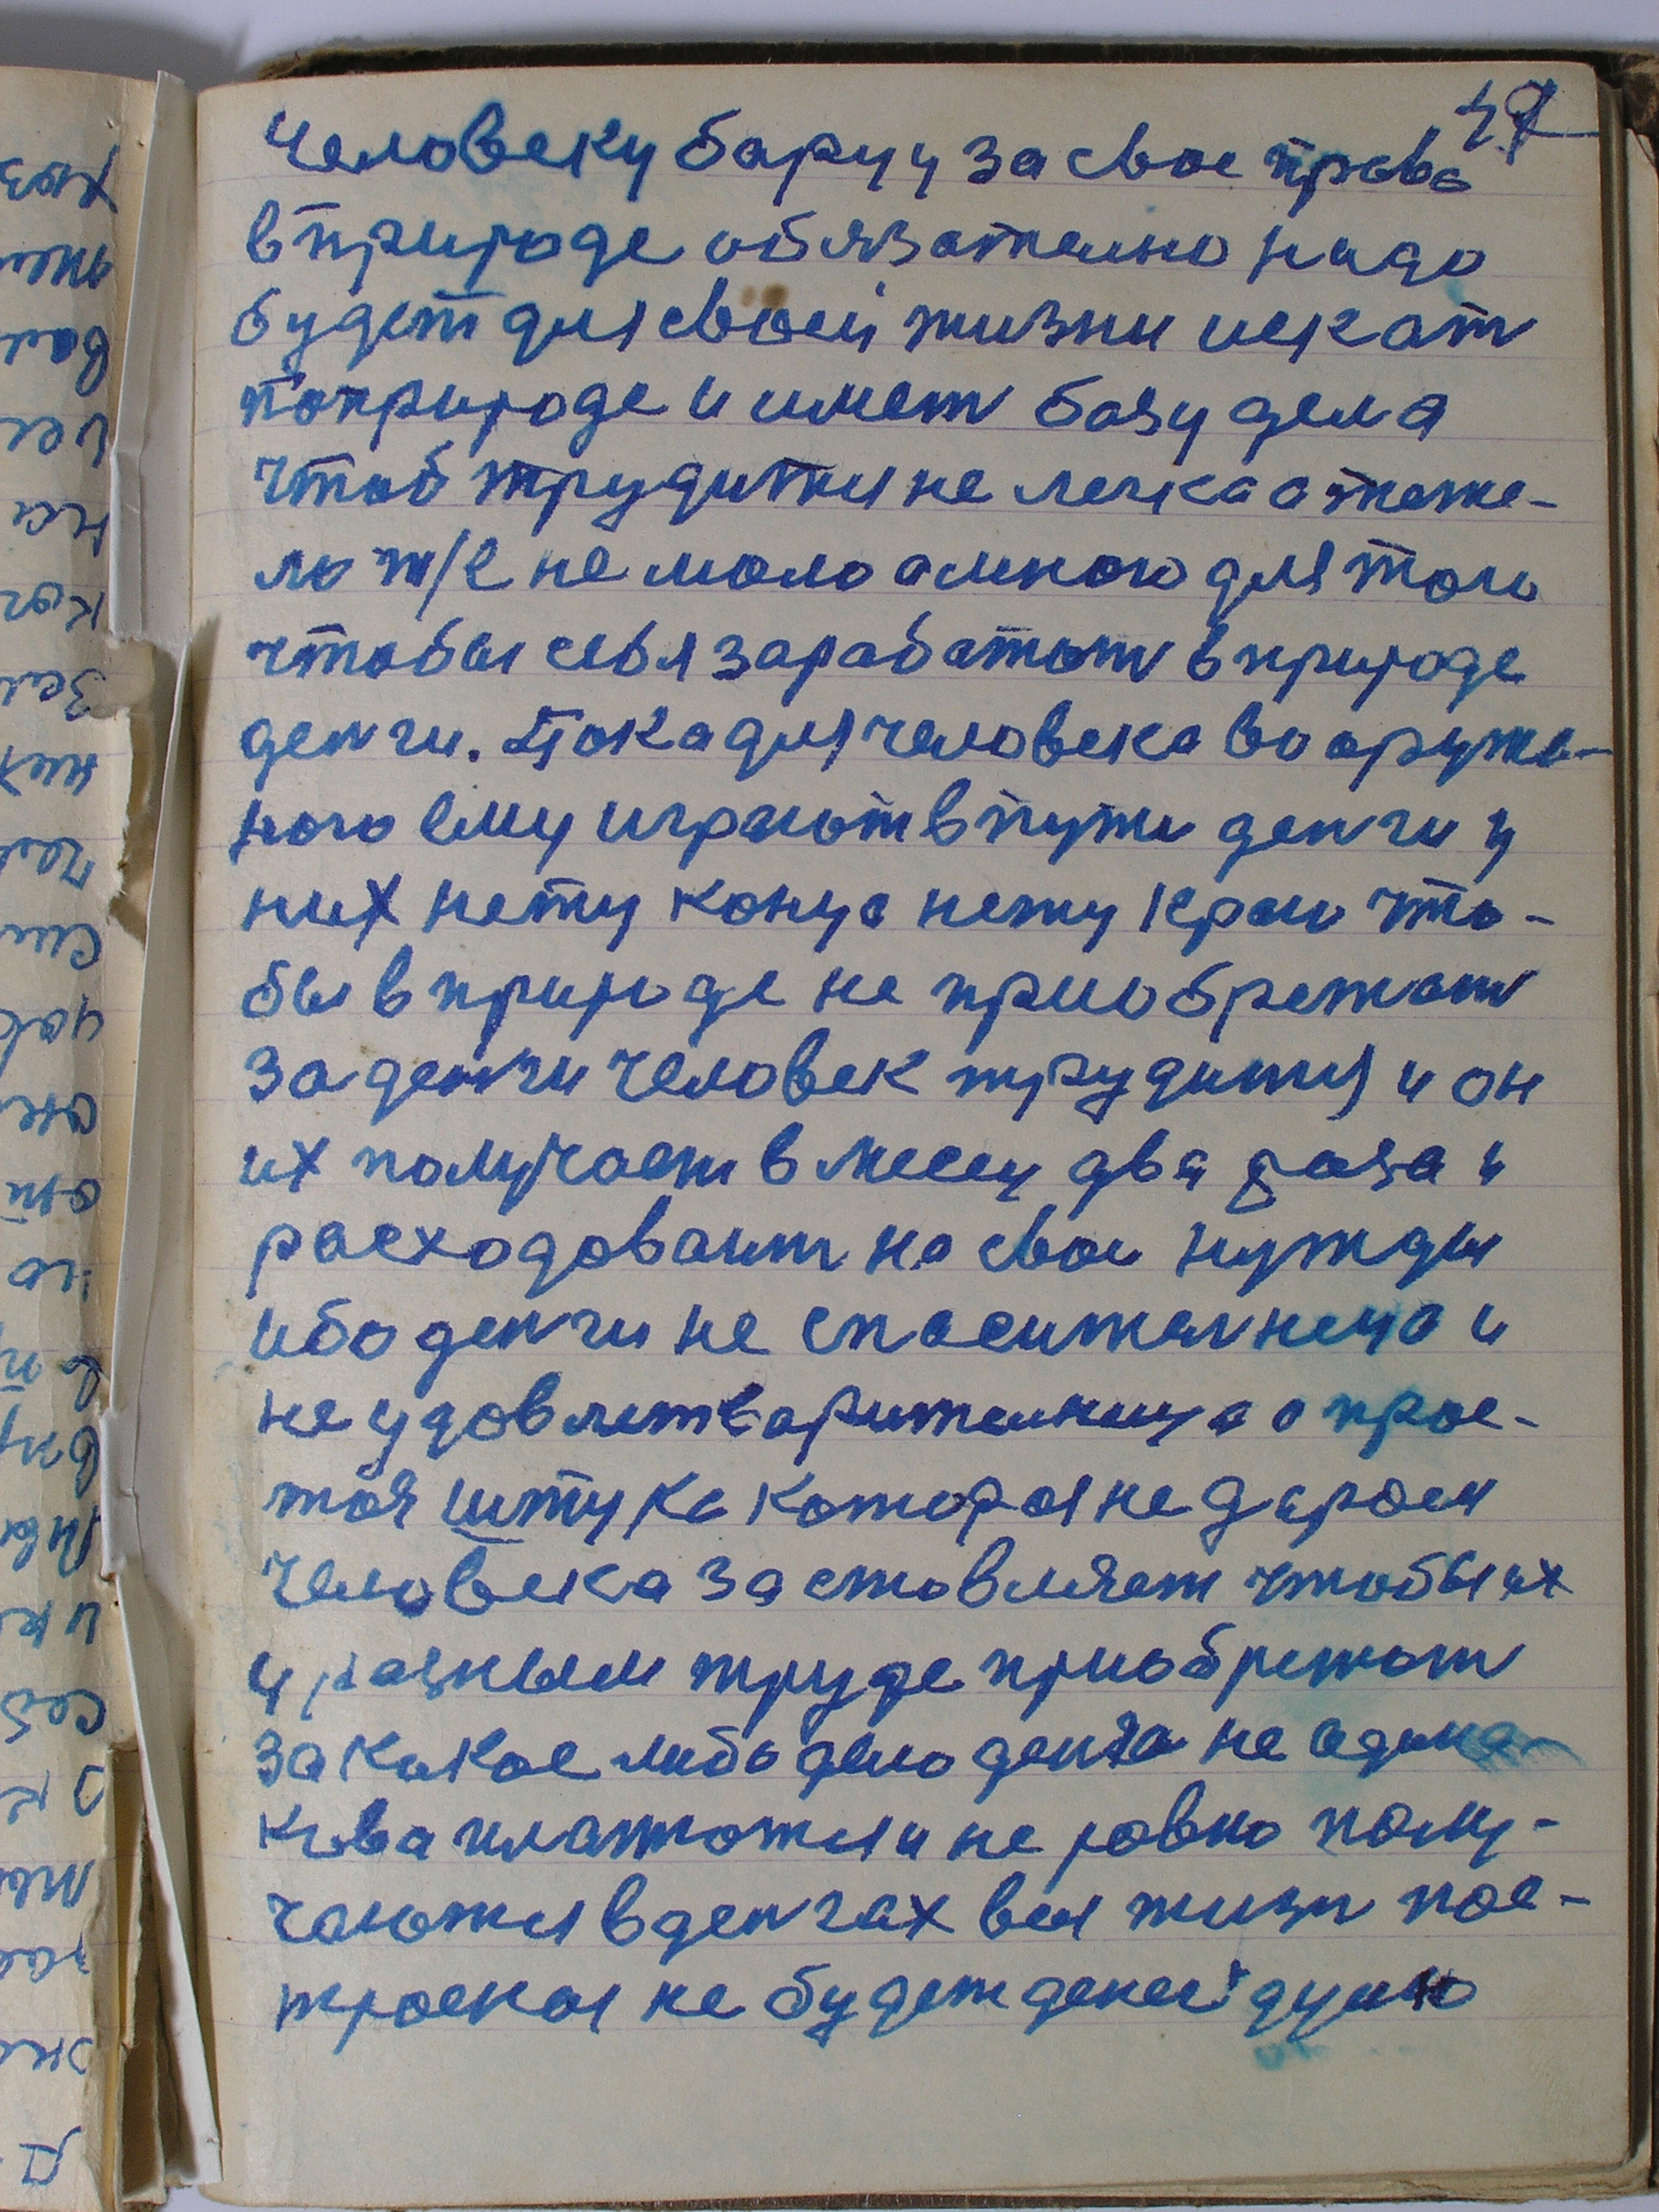 47
Человеку баруу за свое права
в природе обязателно надо
будет для своей жизни искат
поприроде и имет базу дела
чтоб трудится не легка а тяже-
ло т/е не мало а много для того
чтобы себя заработат в природе
денги. Пока для человека вооруже-
ного ему играют в пути денги у
них нету конца нету краю что-
бы в природе не приобретат
За денги человек трудится и он
их получает в месец два раза и
расходоваит на свои нужды
ибо денги не спасителница и
не удовлетварителница а прос-
тоя штука которая не даром
человека заставляет чтобы их
у разным труде приобретат
за какое либо дело денга не одина-
кова платются и не ровно полу-
чаются в денгах вся жизн пос-
троеная не будет денег думаю